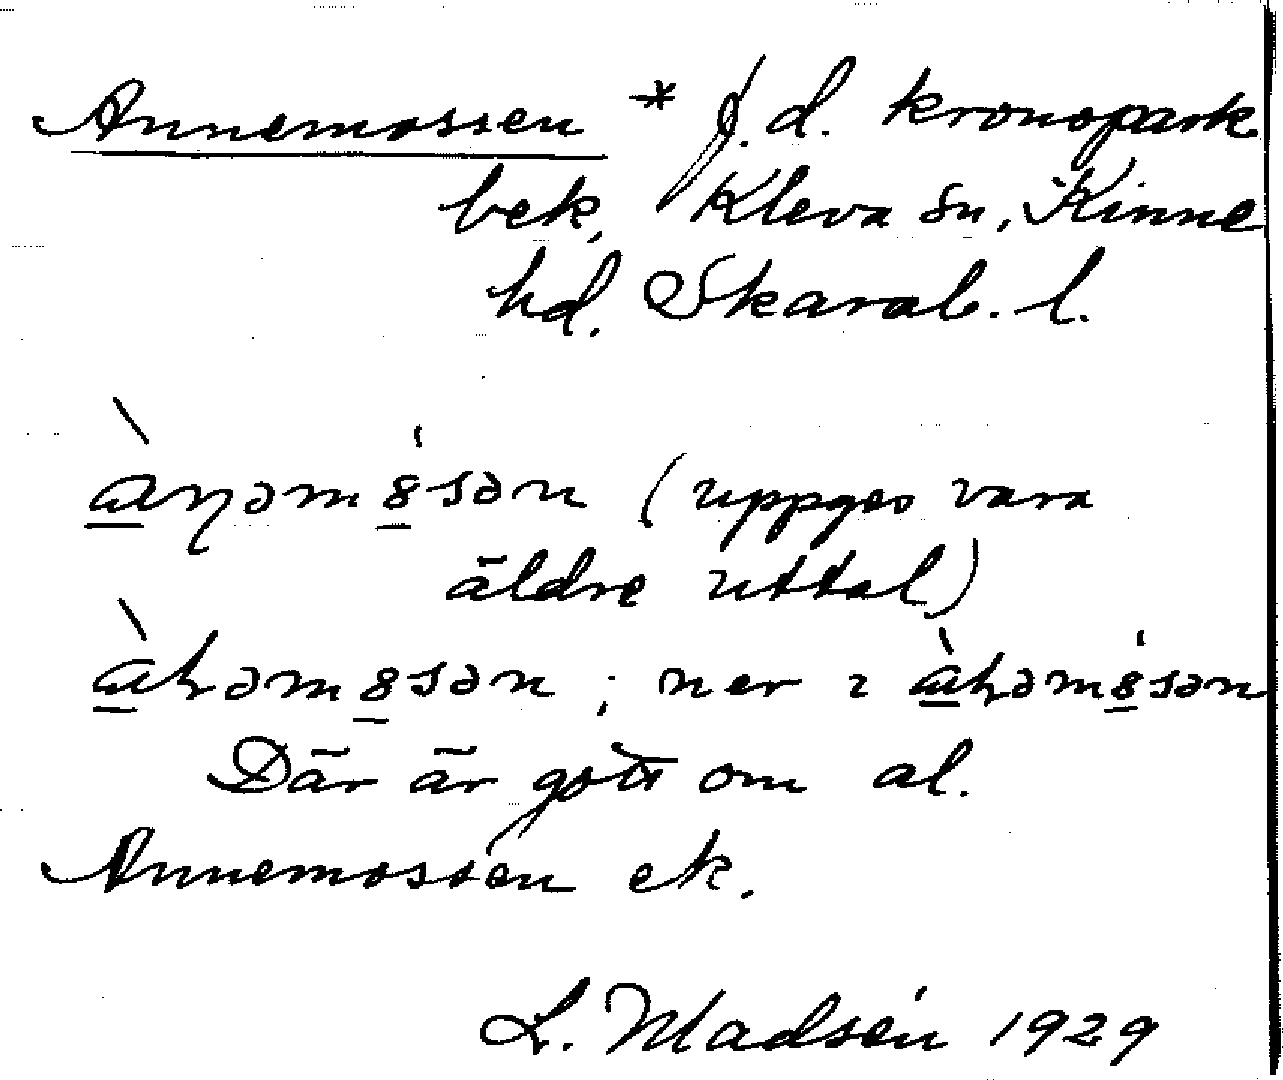 Annemossen * f.d. kronopark
bek, Kleva sn, Kinne
hd. Skarab. l.
àṉəm8́sən (uppges vara
äldre uttal)
àhəm8sən ; ner i àhəm8́sən
Där är gott om al.
Annemossen ek.
L. Madsén 1929